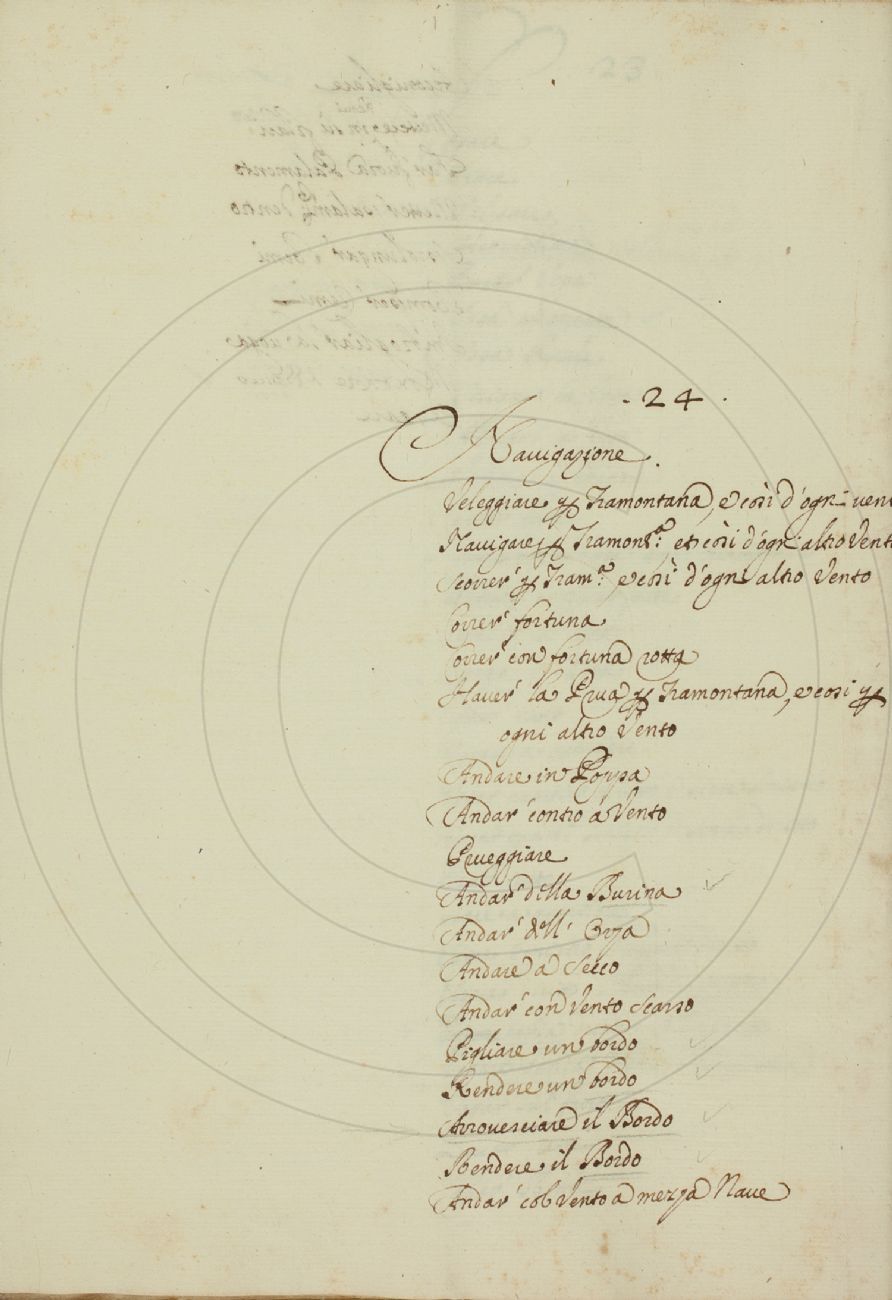 · 24 ·
Navigazione.
Veleggiare p Tramontana, e così d'ogni vent
Navigare p Tramont.ª, et così d'ogn altro Vent
Scorrer' p Tram.ª, e così d'ogni altro Vento
Correr' fortuna
Correr' con fortuna rotta
Haver' la Prua p Tramontana, e così p
ogni altro Vento
Andare in Poppa
Andar' contro à Vento
Prueggiare
Andar' della Burina
Andar' dell' Orza
Andare a Secco
Andar' con Vento Scarso
Pigliare un bordo
Rendere un bordo
Arrovesciare il Bordo
Rendere il Bordo
Andar' col Vento a mezza Nave